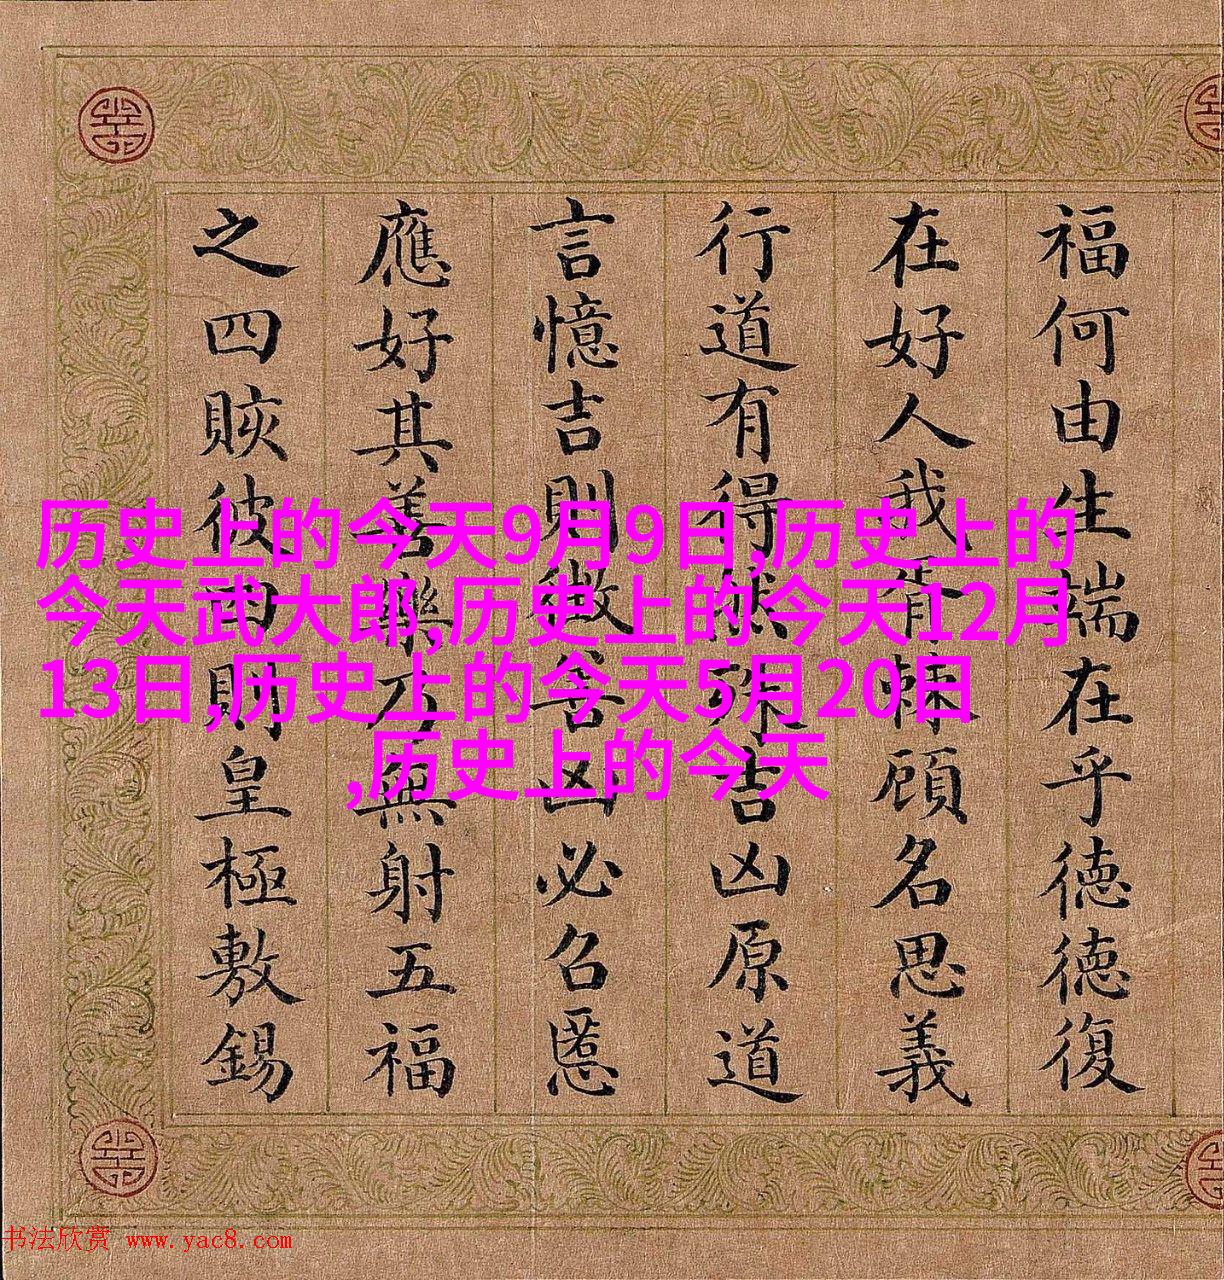 福何由生端在乎徳徳復
在好人我顧名思義
行道有得然吉凶原道
言憶吉則徵善凶必召慝
應好其善樂乃無射五福
之四賅彼四則皇極敷錫
历史上的今天9月9日,历史上的
今天武大郎,历史上的今天12月
13日,历史上的今天5月20日
,历史上的今天
书法欣赏 www.yac8.com